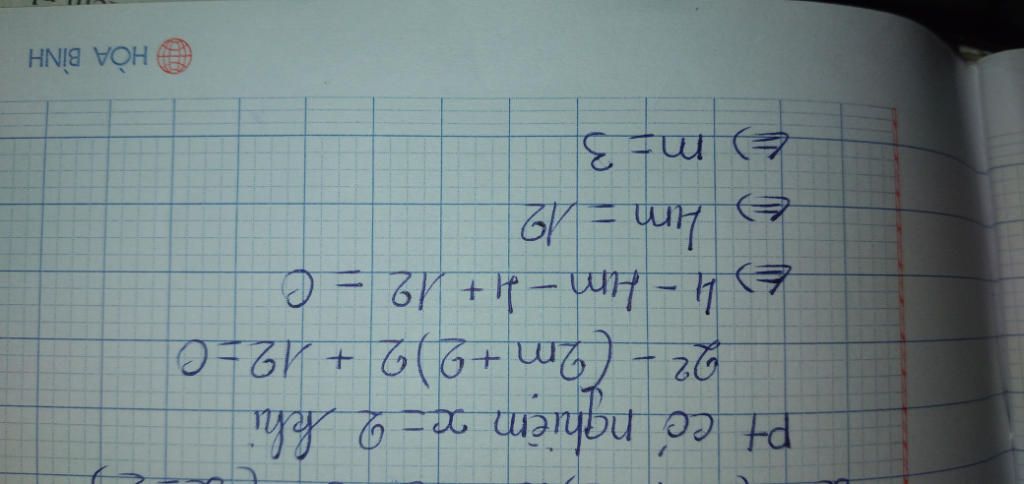 pt có nghiệm x = 2 khi
2² - (2m + 2)2 + 12 = 0
<=> 4 - 4m - 4 + 12 = 0
<=> 4m = 12
<=> m = 3
HÒA BÌNH